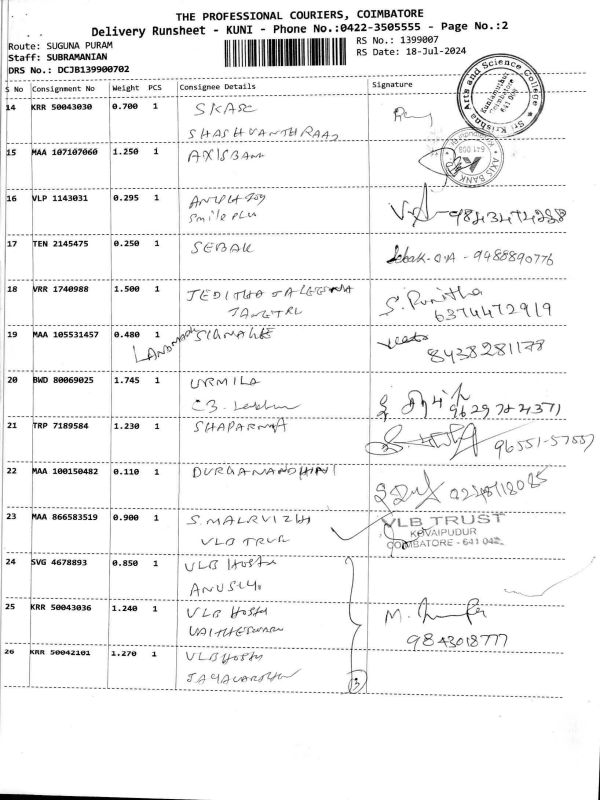 THE PROFESSIONAL COURIERS, COIMBATORE
Delivery Runsheet - KUNI - Phone No.:0422-3505555 - Page No.:2
Route: SUGUNA PURAM
RS No.: 1399007
Staff: SUBRAMANIAN
RS Date: 18-Jul-2024
DRS No.: DCJB139900702
S No Consignment No Weight PCS Consignee Details Signature
Sri Krishna Arts and Science College
Kuniamuthur
Coimbatore
641 008
14 KRR 50043030 0.700 1 SKASC
SHASHVANTHRAAJ
15 MAA 107107060 1.250 1 AXISBANK
AXIS BANK LTD
641 008
16 VLP 1143031 0.295 1
Smile plu
9843474288
17 TEN 2145475 0.250 1 SEBAK Sebak. O.A - 9488890776
18 VRR 1740988 1.500 1 S. Punitha
6374472919
19 MAA 105531457 0.480 1 LANDMARK
8438281178
20 BWD 80069025 1.745 1 URMILA
C3. 9629724371
21 TRP 7189584 1.230 1 SHAPARNA 96551-57557
22 MAA 100150482 0.110 1 DURGANANDHINI
23 MAA 866583519 0.900 1 S. MALRVIZHI
VLB TRUR
VLB TRUST
KOVAIPUDUR
COIMBATORE - 641 042.
24 SVG 4678893 0.850 1 VLB HOSTU
ANUSUYA
25 KRR 50043036 1.240 1 VLB HOSTU
VAITHESWARN
M.
9843018777
26 KRR 50042101 1.270 1 VLB HOSTU
3